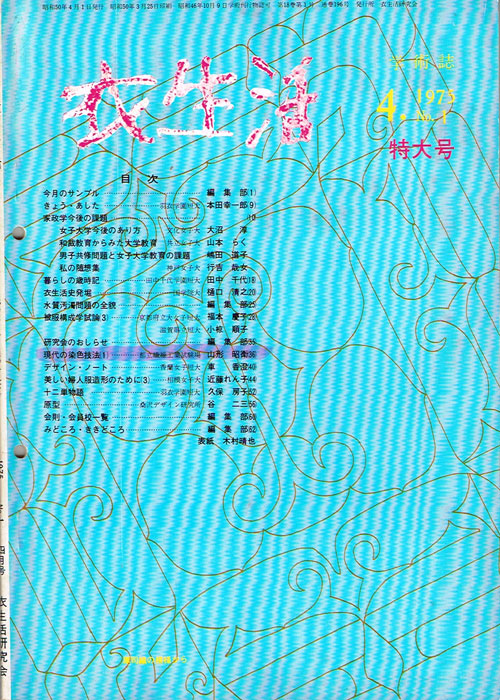 昭和50年4月1日発行 昭和50年3月25日印刷 昭和46年10月9日学術刊行物認可 第18巻第1号 通巻196号 発行所 衣生活研究会
学術誌
衣生活
4. 1975
No. 1
特大号
目 次
今月のサンプル 編集部(1)
きょう・あした 羽衣学園短大 本田幸一郎(9)
家政学今後の課題
女子大学今後のあり方 文化女子大 大沼 淳
和裁教育からみた大学教育 共立女子大 山本 らく
男子共修問題と女子大学教育の課題 嶋田 道子
私の随想集 神戸女子大 行吉 哉女
暮らしの歳時記 田中千代学園短大 田中 千代
衣生活史発掘 樋口 清之
水質汚濁問題の全貌 編集部
被服構成学試論(3) 京都府立大女子短大 福本 慶子
滋賀県立短大 小椋 順子
研究会のおしらせ 編集部
現代の染色技法(1) 都立繊維工業試験場 山形 昭衛
デザイン・ノート 香蘭女子短大 車 香澄
美しい婦人服造形のために(3) 相模女子大 近藤れん子
十二単物語 羽衣学園短大 久保 房子
原型 桑沢デザイン研究所 谷 二三
会則・会員校一覧 編集部
みどころ・ききどころ 編集部
表紙 木村靖也
衣生活研究会